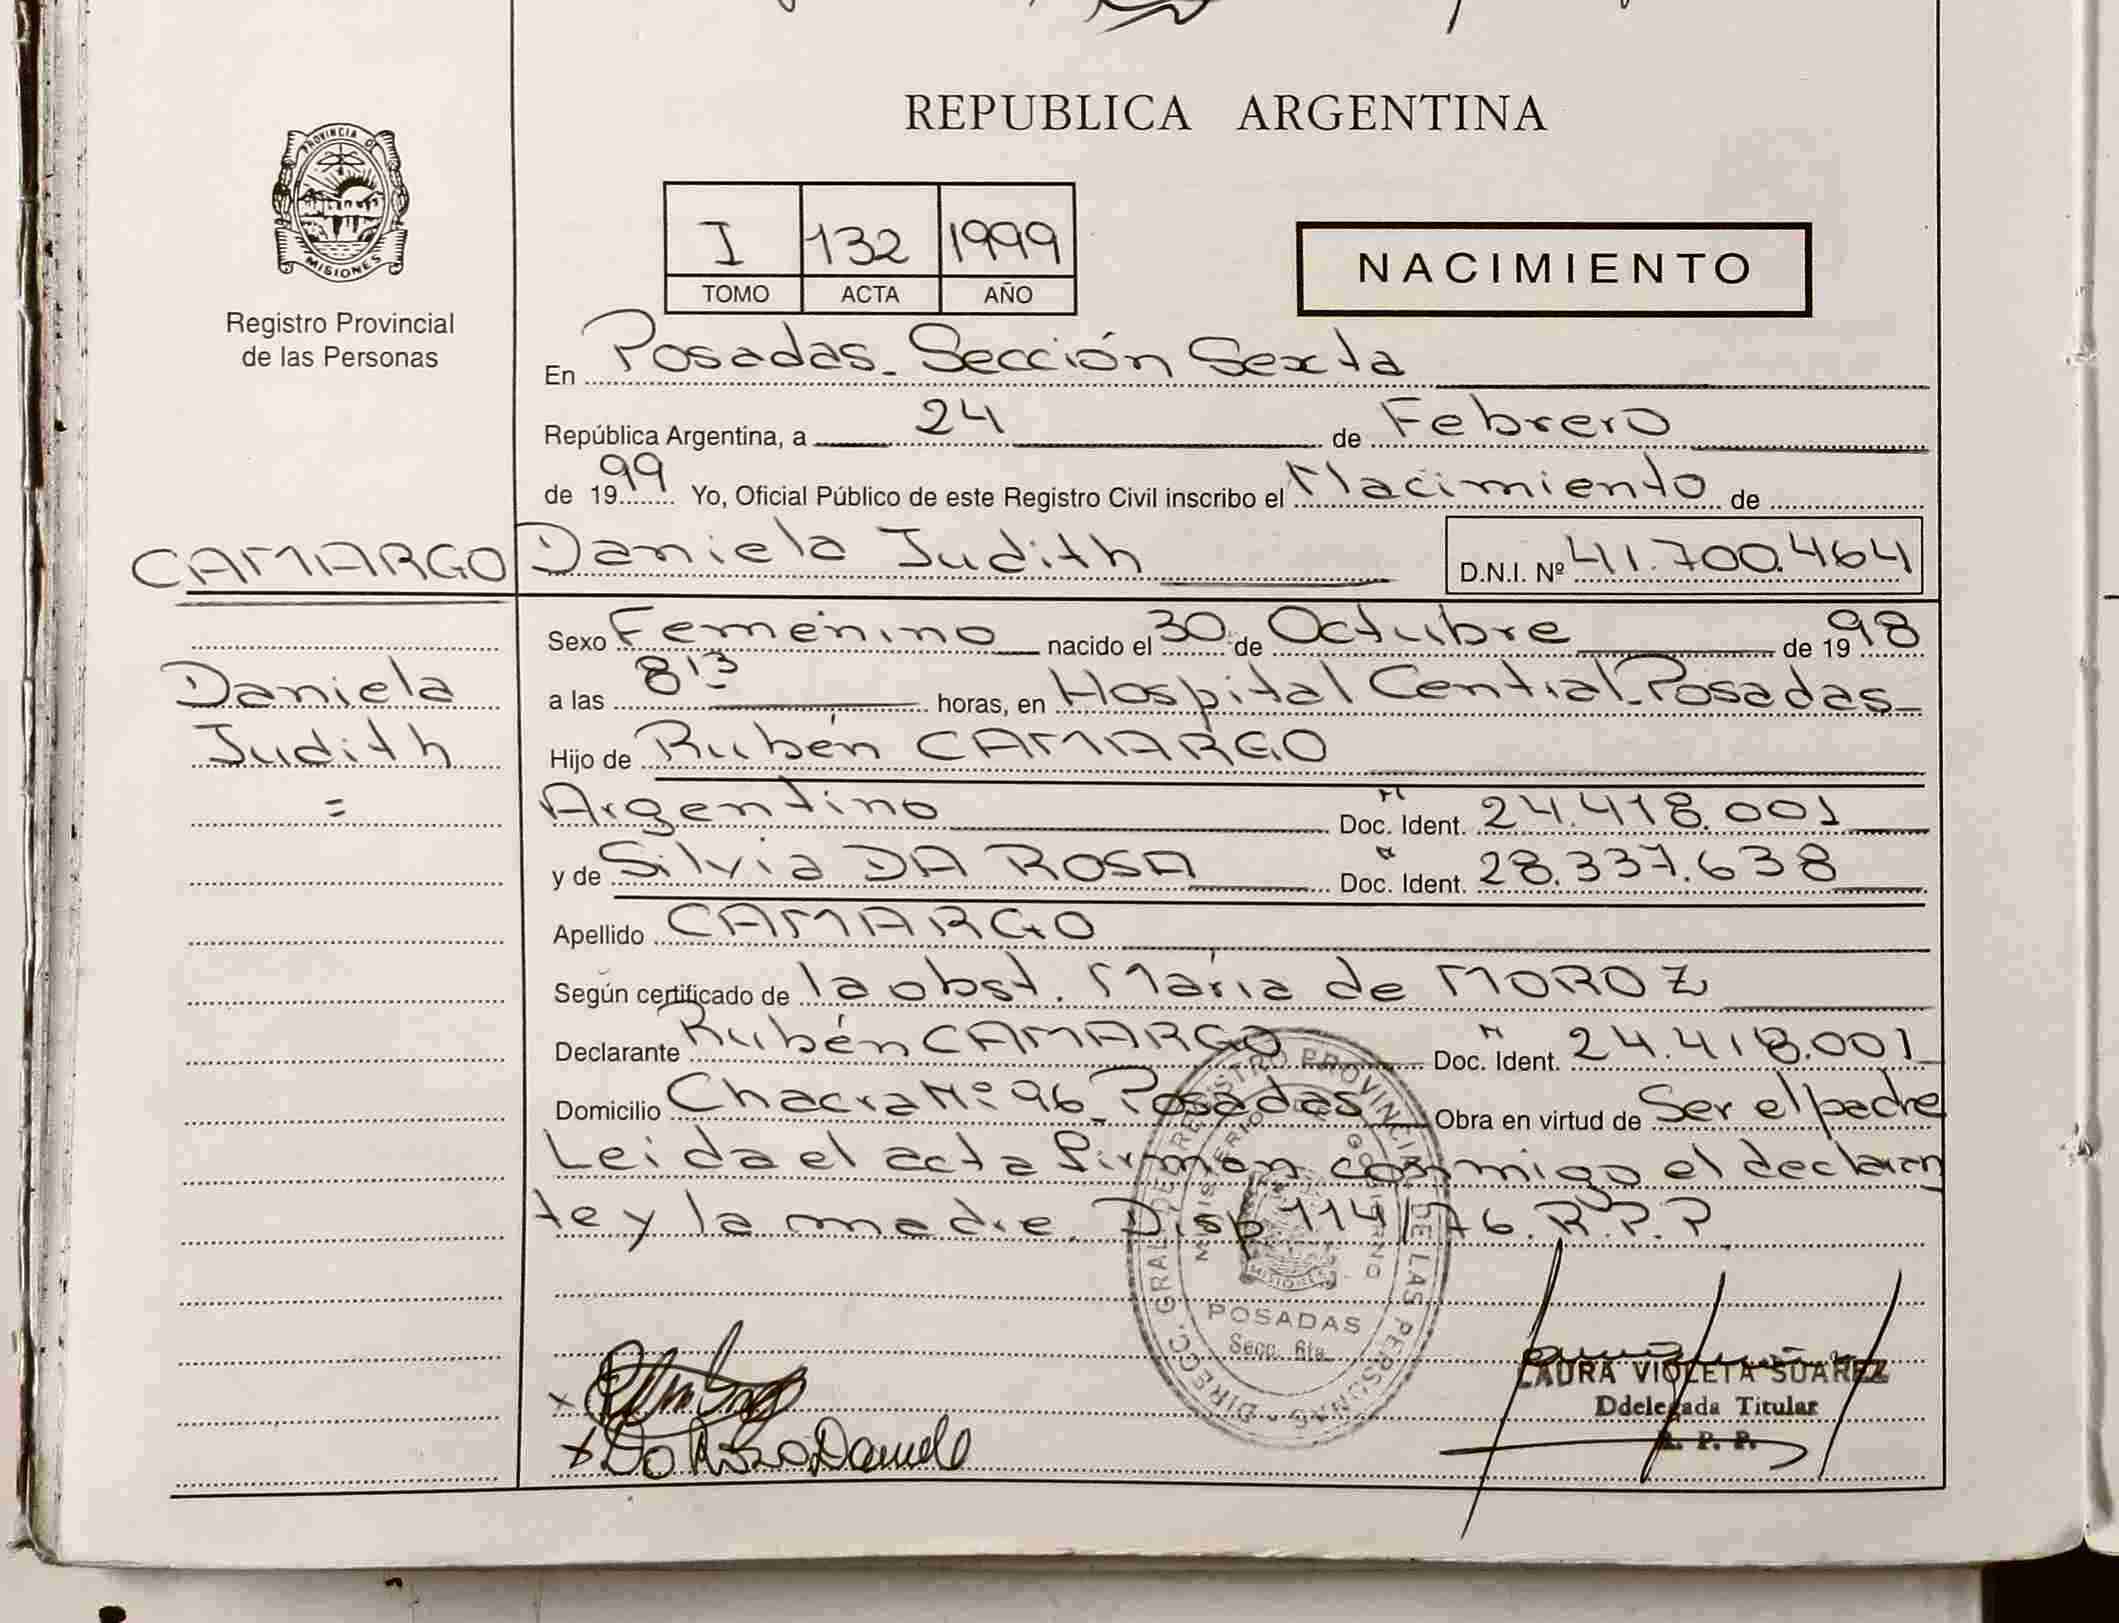 REPUBLICA ARGENTINA
PROVINCIA DE
MISIONES
Registro Provincial
de las Personas
I 132 1999
TOMO ACTA AÑO
NACIMIENTO
En Posadas_ Sección Sexta
República Argentina, a 24 de Febrero
de 1999 Yo, Oficial Público de este Registro Civil inscribo el Nacimiento de
CAMARGO Daniela Judith D.N.I. Nº 41.700.464
Sexo Femenino nacido el 30 de Octubre de 1998
Daniela
a las 8:13 horas, en Hospital Central_Posadas_
Judith
Hijo de Rubén CAMARGO
=
Argentino Doc. Ident. 24.418.001
y de Silvia DA ROSA Doc. Ident. 28.337.638
Apellido CAMARGO
Según certificado de la obst. María de MOROZ
Declarante Rubén CAMARGO Doc. Ident. 24.418.001
Domicilio Chacra Nº 96_Posadas Obra en virtud de Ser el padre
Leida el acta firman conmigo el declaran
te y la madre. Disp 114/76. R.P.P.
DIRECC. GRAL. DE REGISTRO PROVINCIAL DE LAS PERSONAS
MINISTERIO DE GOBIERNO
MISIONES
POSADAS
Secc. 6ta.
LAURA VIOLETA SUAREZ
Ddelegada Titular
R. P. P.
x
x Da Rosa Daniela